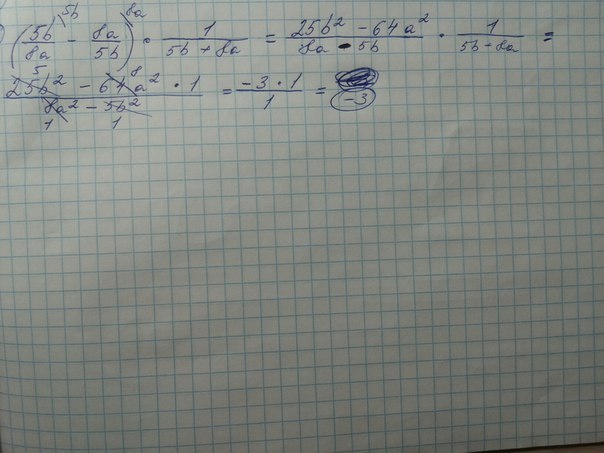 (5b/8a \5b - 8a/5b \8a) · 1/(5b + 8a) = (25b² - 64a²)/(8a · 5b) · 1/(5b + 8a) =
(25b² - 64a² · 1)/(8a² - 5b²) = (-3 · 1)/1 = -3
5 8
1 1